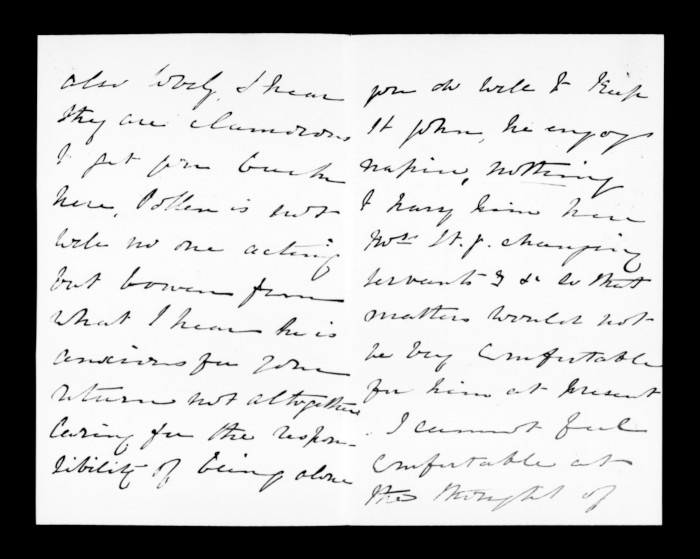 also lovely, I hear
they are clamorous
to get you back
here, Pollen is not
well no one acting
but Bowen from
what I hear he is
anxious for your
return not altogether
caring for the respon-
sibility of being alone
you do well to keep
St John, he enjoys
napier, nothing
to hary him here
Mrs St. J. changing
servants & & so that
matters would not
be very comfortable
for him at present
. I cannot feel
comfortable at
the thought of